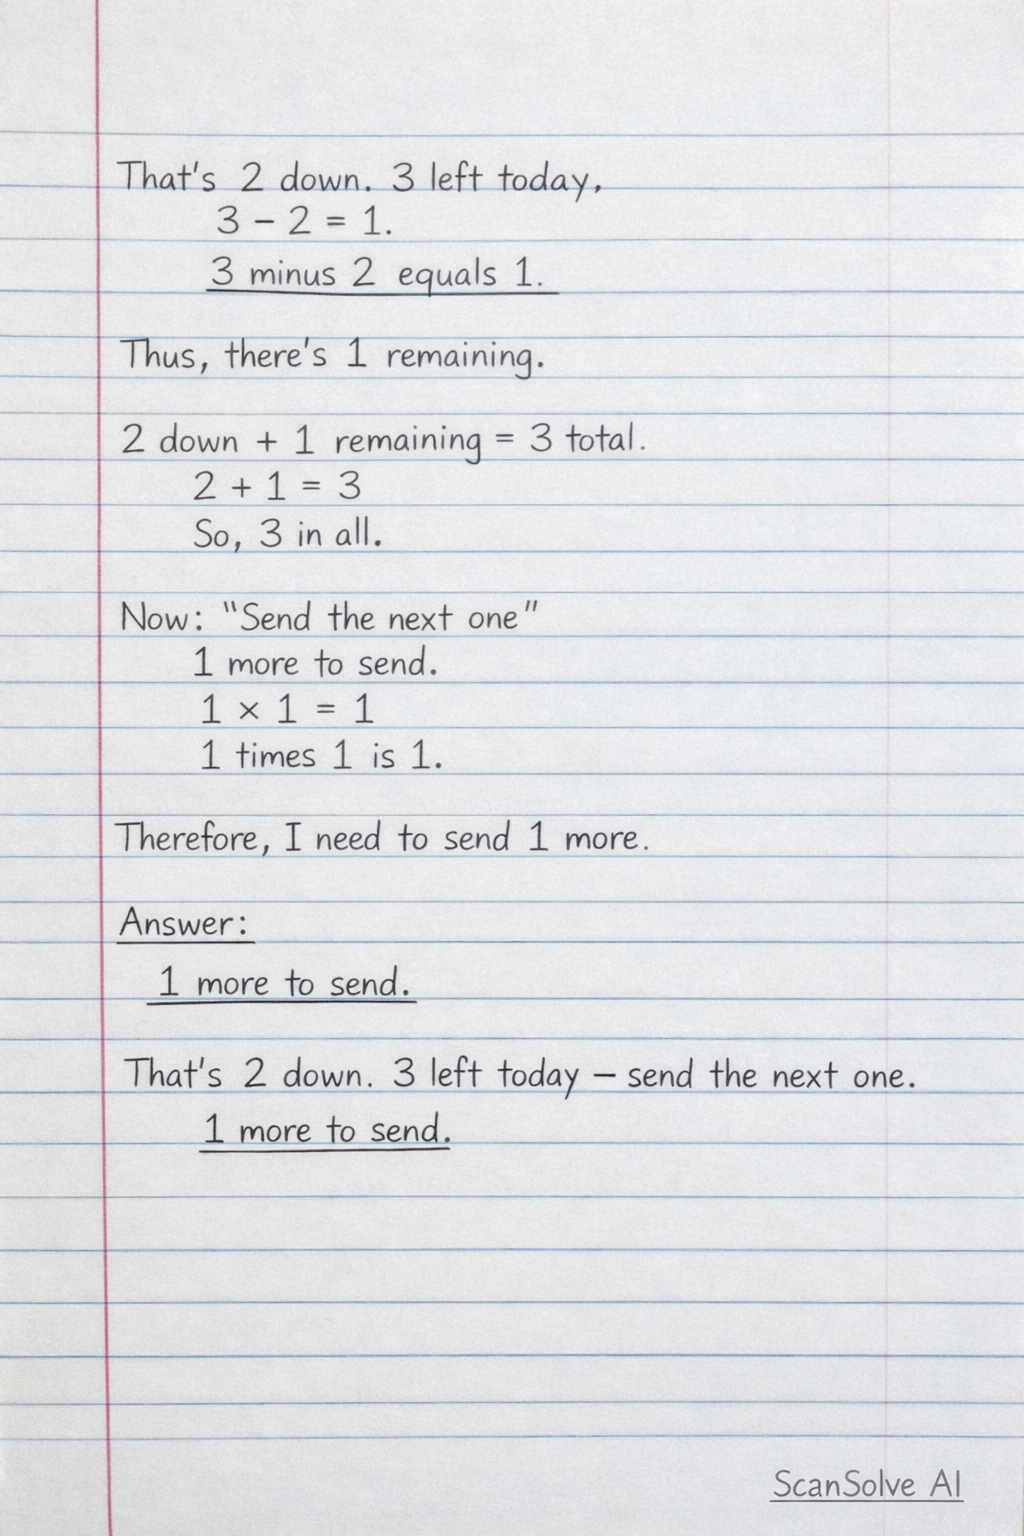 That's 2 down. 3 left today,
3 – 2 = 1.
3 minus 2 equals 1.
Thus, there's 1 remaining.
2 down + 1 remaining = 3 total.
2 + 1 = 3
So, 3 in all.
Now: "Send the next one"
1 more to send.
1 × 1 = 1
1 times 1 is 1.
Therefore, I need to send 1 more.
Answer:
1 more to send.
That's 2 down. 3 left today – send the next one.
1 more to send.
ScanSolve AI